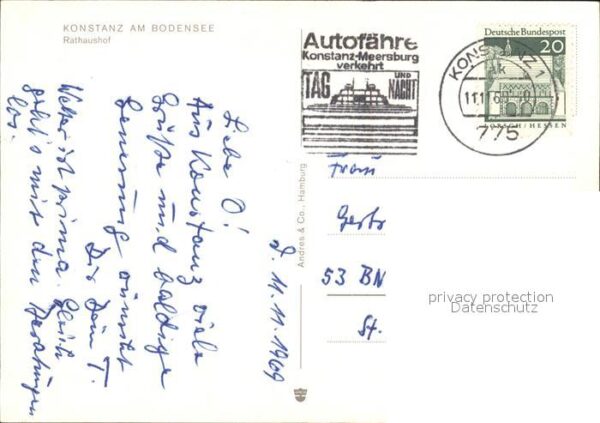 KONSTANZ AM BODENSEE
Rathaushof
Autofähre
Konstanz-Meersburg
verkehrt
TAG UND NACHT
KONSTANZ 1
ak
11.11.69
775
Deutsche Bundespost
20
LORSCH / HESSEN
d. 11.11.1969
Liebe O!
Aus Konstanz viele
Grüße und baldige
Genesung wünscht
Dir Dein T.
Wetter ist prima. Gleich
geht's mit den Beratungen
los.
Andres & Co., Hamburg
Frau
Gertr
53 BN
St.
privacy protection
Datenschutz